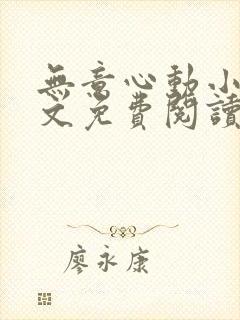 無意心動小
文免費閱讀
廖永康